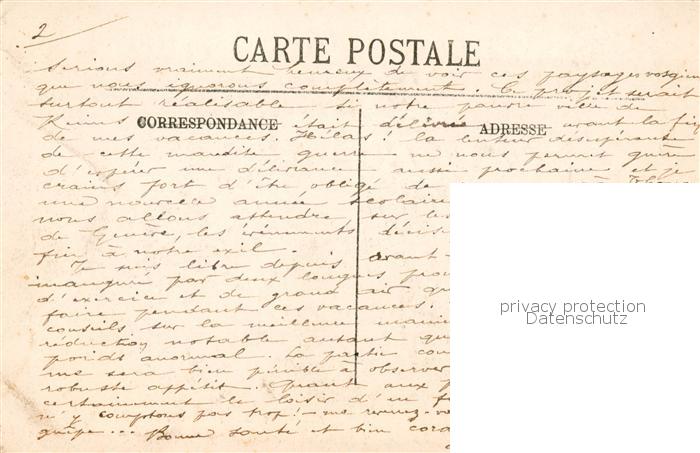 2
CARTE POSTALE
serions vraiment heureux de voir ces paysages vosgiens
que nous ignorons complètement. Ce projet serait
surtout réalisable si notre pauvre ville de
Reims CORRESPONDANCE était délivrée ADRESSE avant la fin
de mes vacances. Hélas! la lenteur désespérante
de cette maudite guerre ne nous permet guère
d'espérer une délivrance aussi prochaine et je
crains fort d'être obligé de
une nouvelle année scolaire
nous allons attendre, sur les
de Genève, les événements décis
fin à notre exil.
Je suis libre depuis avant-
inauguré par deux longues pro
d'exercice et de grand air qu
faire pendant ces vacances.
conseils sur la meilleure mani
réduction notable autant qu
poids anormal. La partie con
me sera bien pénible à observer
robuste appétit. Quant aux p
certainement le loisir d'en f
n'y comptons pas trop! me verrez-vo
guêpe... Bonne santé et bien cord
privacy protection
Datenschutz